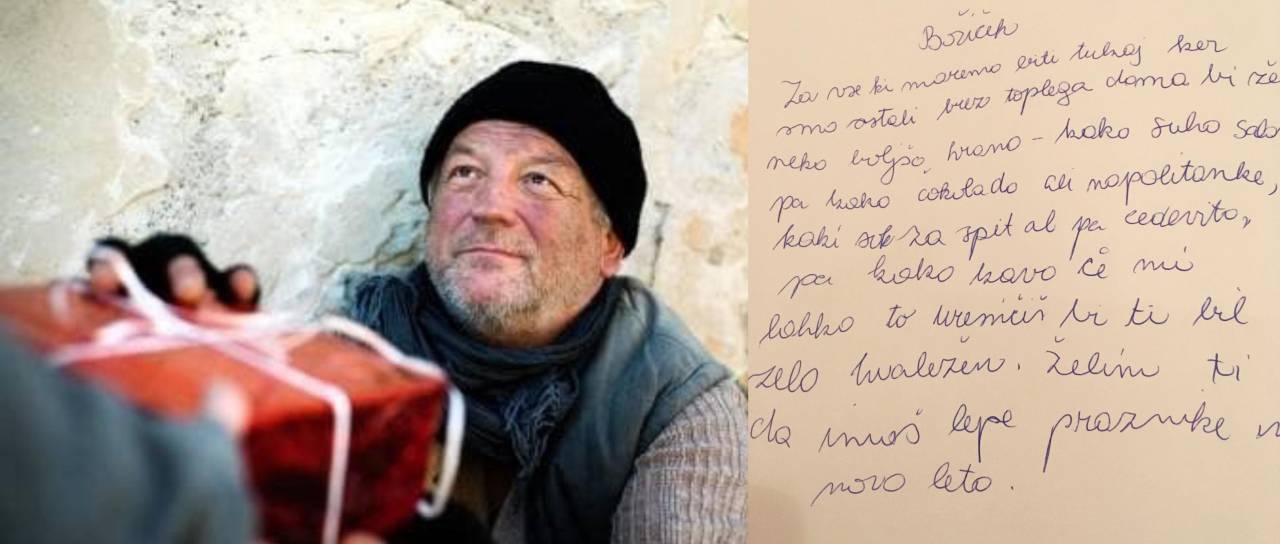 Božiček
Za vse ki moremo biti tukaj ker
smo ostali brez toplega doma bi že
neko boljšo hrano - kako suho sala
pa kako čokolado ali napolitanke,
kaki sok za spit al pa cedevito,
pa kako kavo če mi
lahko to uresničiš bi ti bil
zelo hvaležen. Želim ti
da imaš lepe praznike in
novo leto.